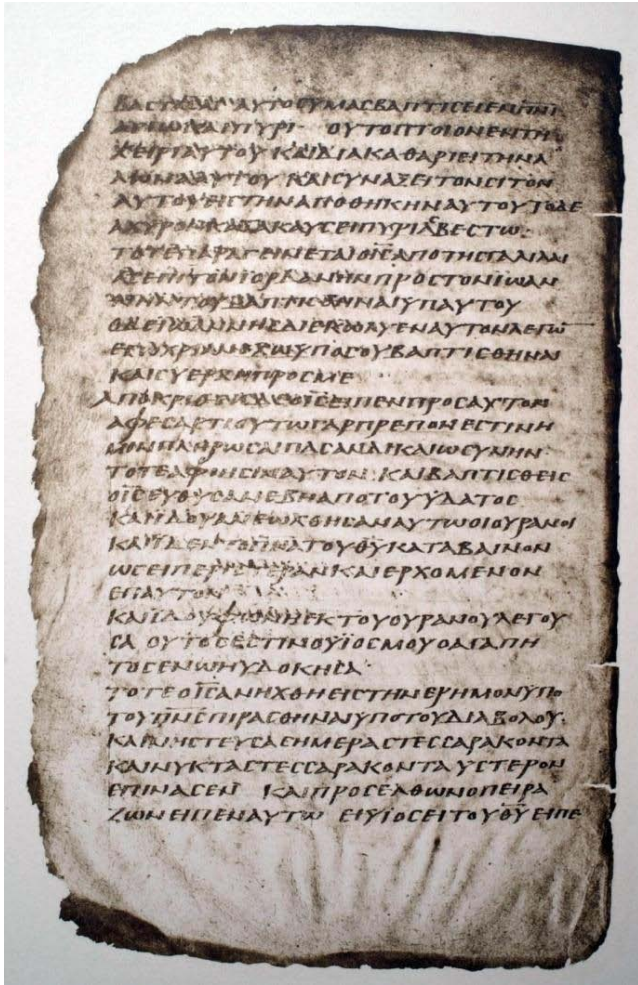 ΒΑΣΤΑΣΑΙ ΑΥΤΟΣΥΜΑΣΒΑΠΤΙΣΕΙΕΝΠΝΙ
ΑΓΙΩΚΑΙΠΥΡΙ ΟΥΤΟΠΤΟΙΟΝΕΝΤΗ
ΧΕΙΡΙΑΥΤΟΥ ΚΑΙΔΙΑΚΑΘΑΡΙΕΙΤΗΝΑ
ΛΩΝΑΑΥΤΟΥ ΚΑΙΣΥΝΑΞΕΙΤΟΝΣΙΤΟΝ
ΑΥΤΟΥΕΙΣΤΗΝΑΠΟΘΗΚΗΝΑΥΤΟΥΤΟΔΕ
ΑΧΥΡΟΝΚΑΤΑΚΑΥΣΕΙΠΥΡΙΑΣΒΕΣΤΩ·
ΤΟΤΕΠΑΡΑΓΕΙΝΕΤΑΙΟΙΣΑΠΟΤΗΣΓΑΛΙΛΑΙ
ΑΣΕΠΙΤΟΝΙΟΡΔΑΝΗΝΠΡΟΣΤΟΝΙΩΑΝ
ΝΗΝΤΟΥΒΑΠΤΙΣΘΗΝΑΙΥΠΑΥΤΟΥ
ΟΔΕΙΩΑΝΝΗΣΔΙΕΚΩΛΥΕΝΑΥΤΟΝΛΕΓΩ
ΕΓΩΧΡΙΑΝΕΧΩΥΠΟΣΟΥΒΑΠΤΙΣΘΗΝΑΙ
ΚΑΙΣΥΕΡΧΗΠΡΟΣΜΕ
ΑΠΟΚΡΙΘΕΙΣΔΕΟΙΣΕΙΠΕΝΠΡΟΣΑΥΤΟΝ
ΑΦΕΣΑΡΤΙΟΥΤΩΓΑΡΠΡΕΠΟΝΕΣΤΙΝΗ
ΜΙΝΠΛΗΡΩΣΑΙΠΑΣΑΝΔΙΚΑΙΩΣΥΝΗΝ
ΤΟΤΕΑΦΙΗΣΙΝΑΥΤΟΝ· ΚΑΙΒΑΠΤΙΣΘΕΙΣ
ΟΙΣΕΥΘΥΣΑΝΕΒΗΑΠΟΤΟΥΥΔΑΤΟΣ
ΚΑΙΪΔΟΥΑΝΕΩΧΘΗΣΑΝΑΥΤΩΟΙΟΥΡΑΝΟΙ
ΚΑΙΪΔΕΝΤΟΠΝΑΤΟΥΘΥΚΑΤΑΒΑΙΝΟΝ
ΩΣΕΙΠΕΡΙΣΤΕΡΑΝΚΑΙΕΡΧΟΜΕΝΟΝ
ΕΠΑΥΤΟΝ
ΚΑΙΪΔΟΥΦΩΝΗΕΚΤΟΥΟΥΡΑΝΟΥΛΕΓΟΥ
ΣΑ ΟΥΤΟΣΕΣΤΙΝΟΥΪΟΣΜΟΥΟΑΓΑΠΗ
ΤΟΣΕΝΩΗΥΔΟΚΗΣΑ·
ΤΟΤΕΟΙΣΑΝΗΧΘΗΕΙΣΤΗΝΕΡΗΜΟΝΥΠΟ
ΤΟΥΠΝΣΠΙΡΑΣΘΗΝΑΙΥΠΟΤΟΥΔΙΑΒΟΛΟΥ·
ΚΑΙΝΗΣΤΕΥΣΑΣΗΜΕΡΑΣΤΕΣΣΑΡΑΚΟΝΤΑ
ΚΑΙΝΥΚΤΑΣΤΕΣΣΑΡΑΚΟΝΤΑΥΣΤΕΡΟΝ
ΕΠΙΝΑΣΕΝ ΚΑΙΠΡΟΣΕΛΘΩΝΟΠΕΙΡΑ
ΖΩΝΕΙΠΕΝΑΥΤΩ ΕΙΥΪΟΣΕΙΤΟΥΘΥΕΙΠΕ